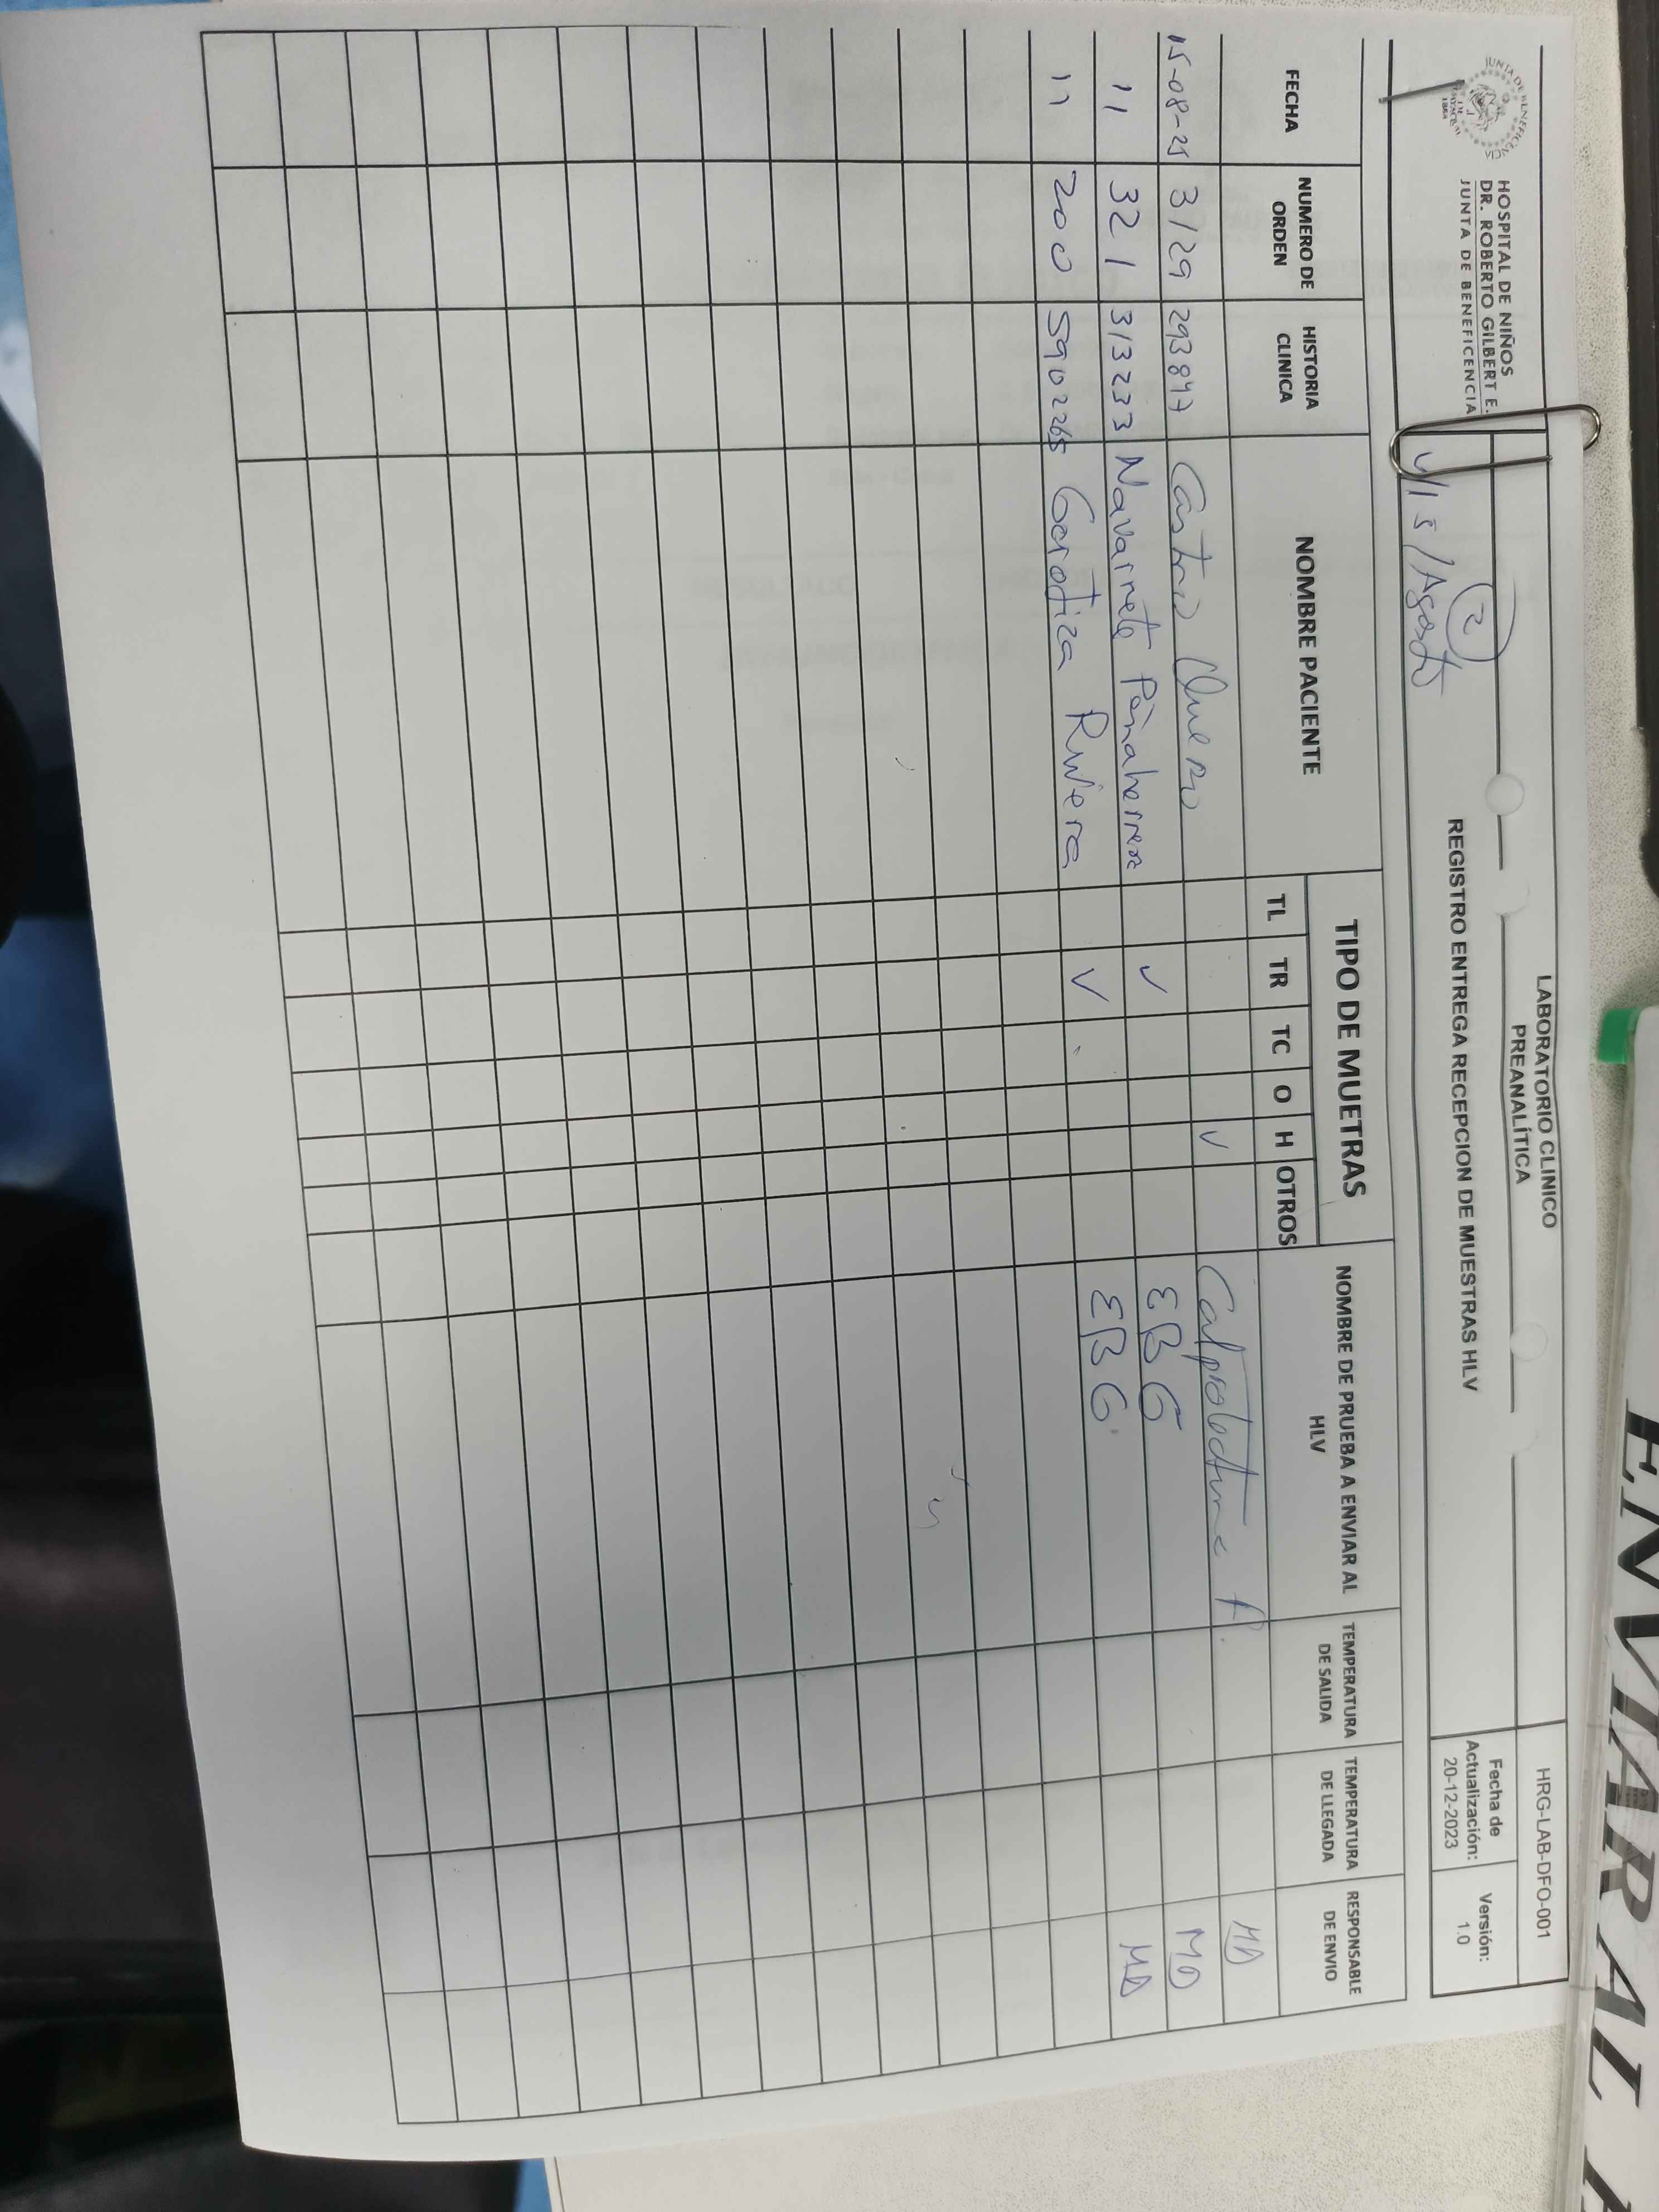 JUNTA DE BENEFICENCIA
HOSPITAL DE NIÑOS
DR. ROBERTO GILBERT E.
JUNTA DE BENEFICENCIA
LABORATORIO CLINICO
PREANALÍTICA
HRG-LAB-DFO-001
REGISTRO ENTREGA RECEPCION DE MUESTRAS HLV
Fecha de Actualización: 20-12-2023
Versión: 1.0
2
V/15/Agosto
FECHA NUMERO DE ORDEN HISTORIA CLINICA NOMBRE PACIENTE TIPO DE MUETRAS NOMBRE DE PRUEBA A ENVIAR AL HLV TEMPERATURA DE SALIDA TEMPERATURA DE LLEGADA RESPONSABLE DE ENVIO
TL TR TC O H OTROS
15-08-25 3129 Castro ✓ MD
11 321 313233 Navarrete Peñaherrera ✓ EBG MD
11 200 Rivera ✓ EBG MD
ENVIAR AL